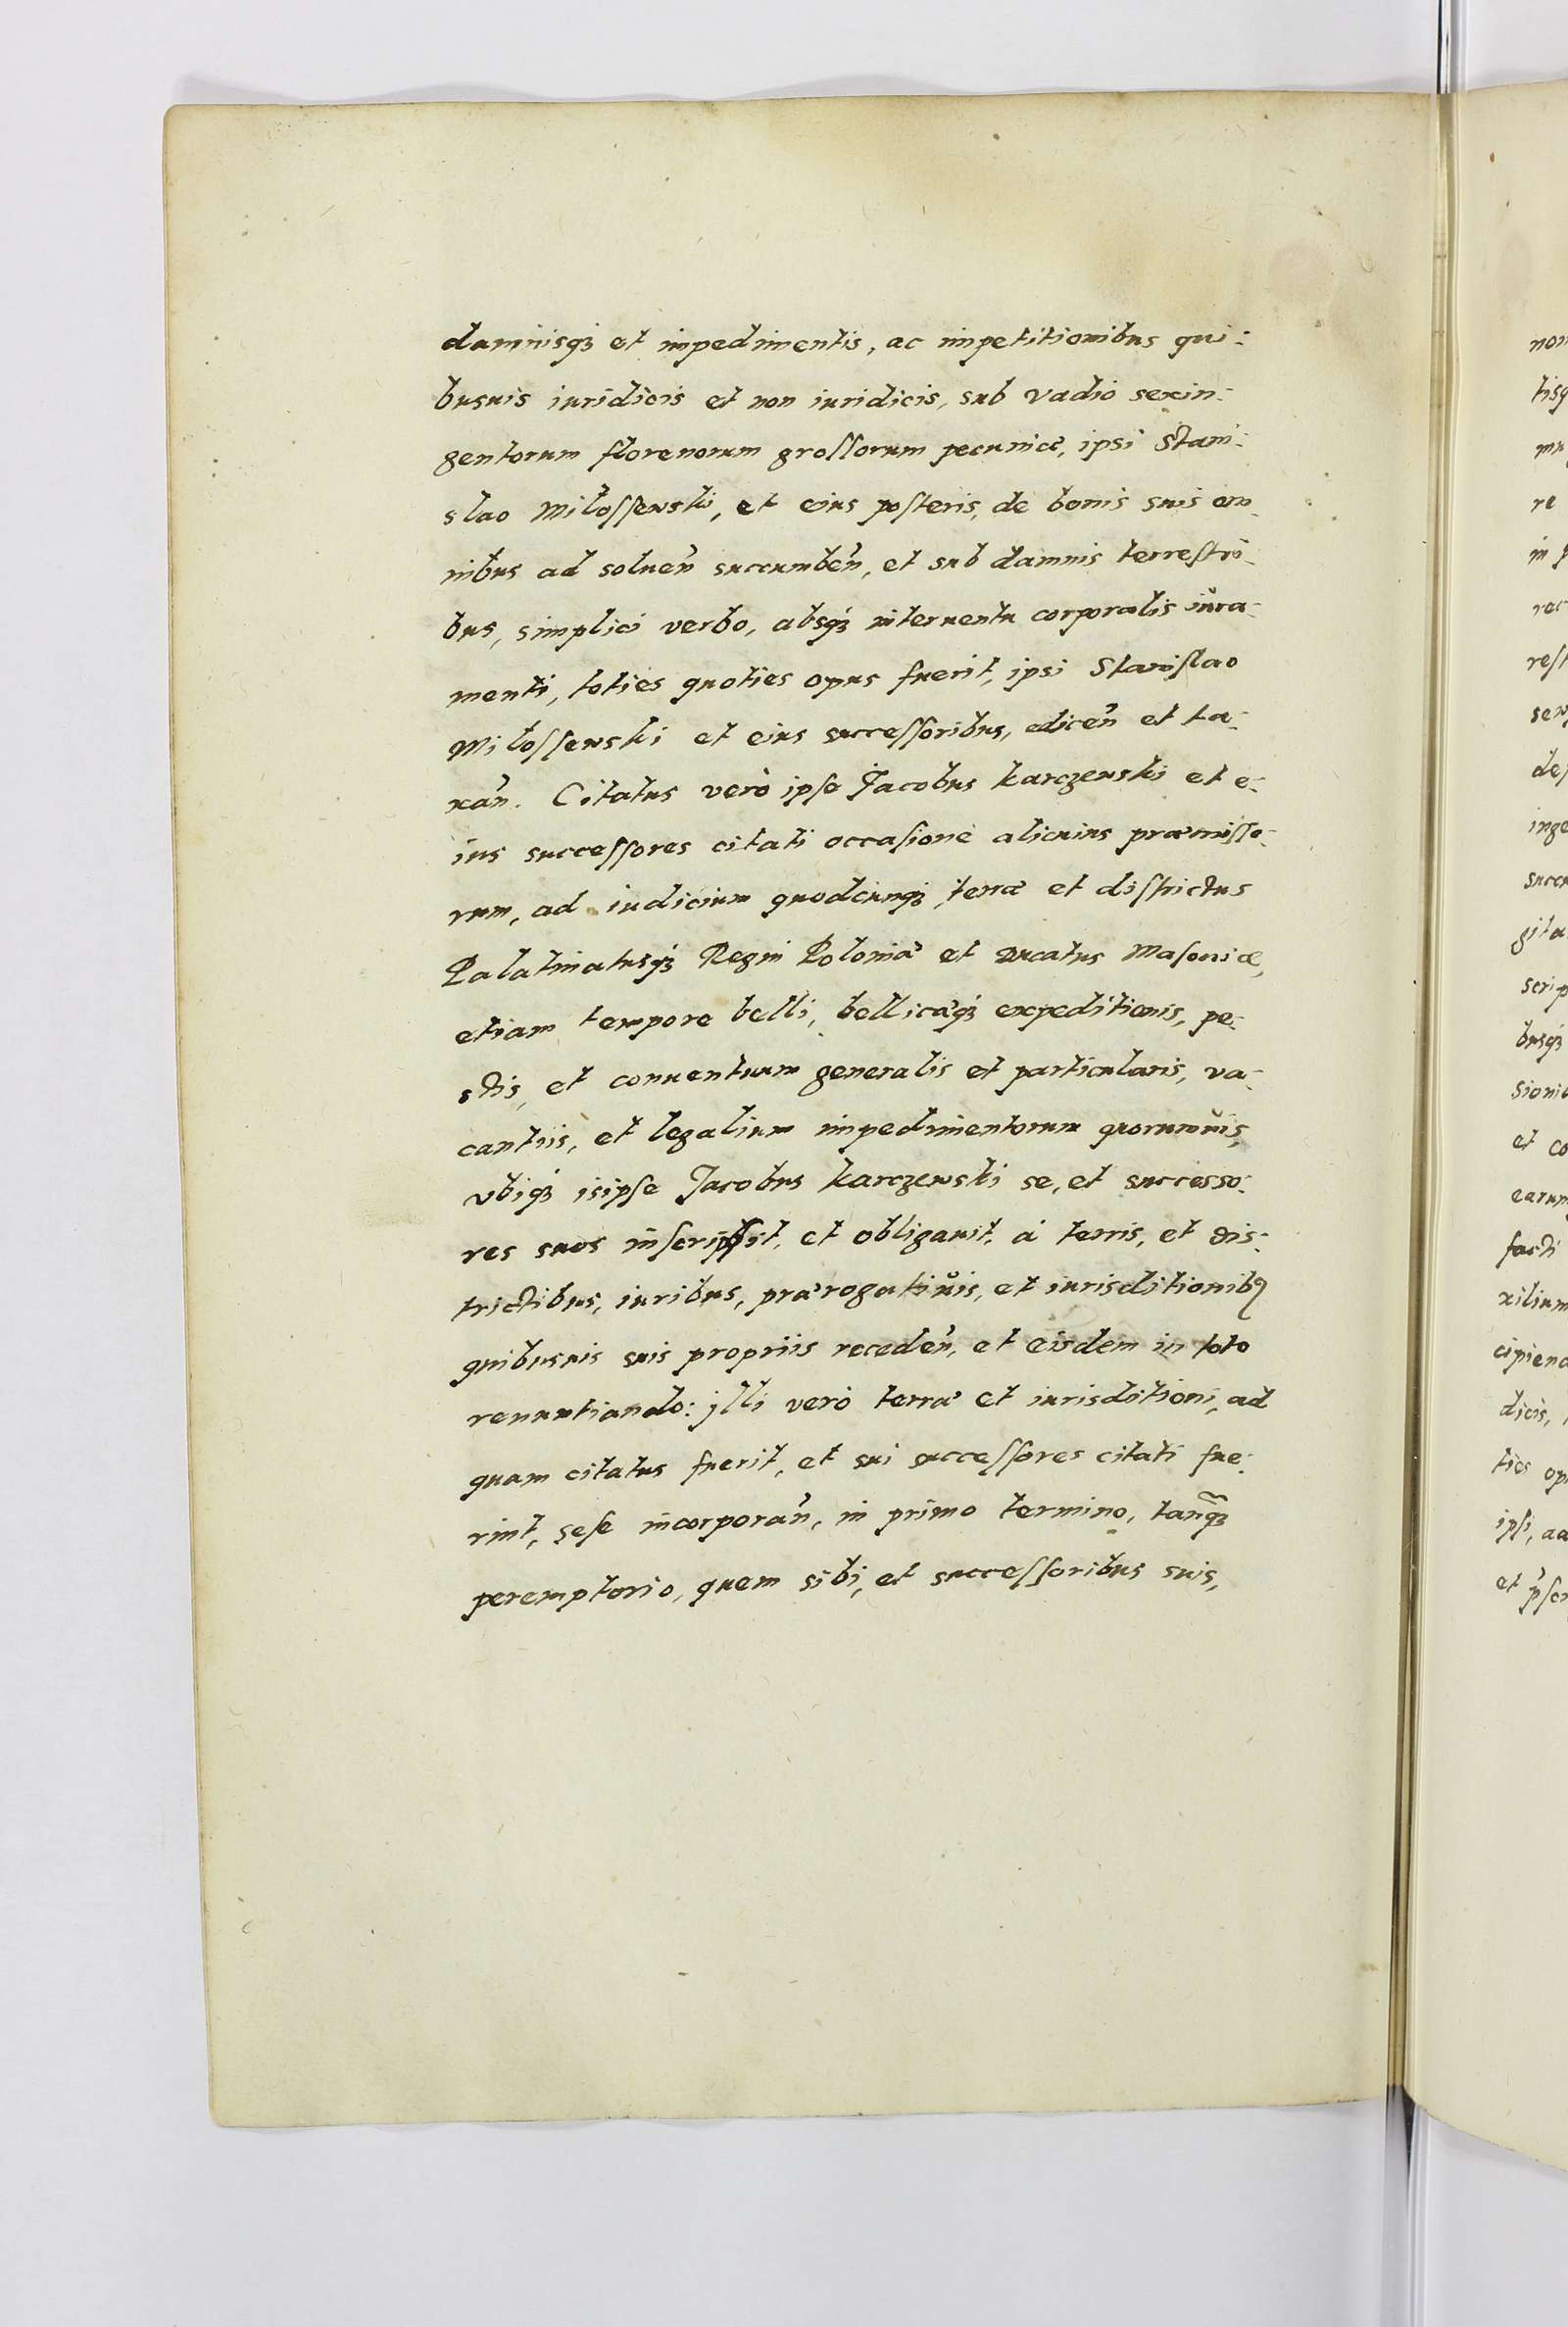 damnisqꝫ et impedimentis, ac impetitionibus qui:
busuis iuridicis et non iuridicis, sub vadio sexin:
gentorum florenorum groſſorum pecuniæ, ipsi Stani:
slao Miloſſewski, et eius poſteris, de bonis suis om
nibus ad soluen̄ succumben̄, et sub damnis terreſtri:
bus, simplici verbo, absqꝫ interuentu corporalis iura:
menti, toties quoties opus fuerit, ipsi Staniſlao
Miloſſewski et eius succeſſoribus, edicen̄ et ta:
xan̄. Citatus verò ipſe Jacobus Karczewski et e:
ius succeſſores citati occaſione alicuius præmiſſo:
rum, ad iudicium quodcunqꝫ, terræ et diſtrictus
Palatinatusqꝫ Regni Poloniæ et Ducatus Maſouiæ,
etiam tempore belli, bellicæqꝫ expeditionis, pe:
stis, et conuentuum generalis et particularis, va:
cantiis, et legalium impedimentorum quorumuis,
vbiqꝫ isipſe Jacobus Karczewski se, et successo:
res suos inſcripſit, et obligauit, à terris, et dis:
trictibus, iuribus, prærogatiuis, et iurisditionibꝰ
quibusuis suis propriis receden̄, et eisdem in toto
renuntiando: jlli verò terræ et iurisditioni, ad
quam citatus fuerit, et sui succeſſores citati fue:
rint, seſe incorporan̄, in primo termino, tanq̃ꝫ
peremptorio, quem sibi, et succeſſoribus suis,